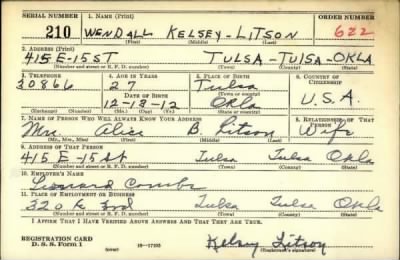 SERIAL NUMBER 1. NAME (Print) ORDER NUMBER
210 WENDALL KELSEY-LITSON 622
(First) (Middle) (Last)
2. ADDRESS (Print)
415 E-15 ST TULSA-TULSA-OKLA
(Number and street or R. F. D. number) (Town) (County) (State)
3. TELEPHONE 4. AGE IN YEARS 5. PLACE OF BIRTH 6. COUNTRY OF CITIZENSHIP
30866 27 Tulsa
(Town or county)
DATE OF BIRTH
12-13-12 Okla U.S.A.
(Exchange) (Number) (Mo.) (Day) (Yr.) (State or country)
7. NAME OF PERSON WHO WILL ALWAYS KNOW YOUR ADDRESS 8. RELATIONSHIP OF THAT PERSON
Mrs. Alice B. Litson Wife
(Mr., Mrs., Miss) (First) (Middle) (Last)
9. ADDRESS OF THAT PERSON
415 E-15 St Tulsa Tulsa Okla
(Number and street or R. F. D. number) (Town) (County) (State)
10. EMPLOYER'S NAME
Leonard Combs
11. PLACE OF EMPLOYMENT OR BUSINESS
320 E 3rd Tulsa Tulsa Okla
(Number and street or R. F. D. number) (Town) (County) (State)
I AFFIRM THAT I HAVE VERIFIED ABOVE ANSWERS AND THAT THEY ARE TRUE.
REGISTRATION CARD
D. S. S. Form 1 (over) 16-17105 Kelsey Litson
(Registrant's signature)